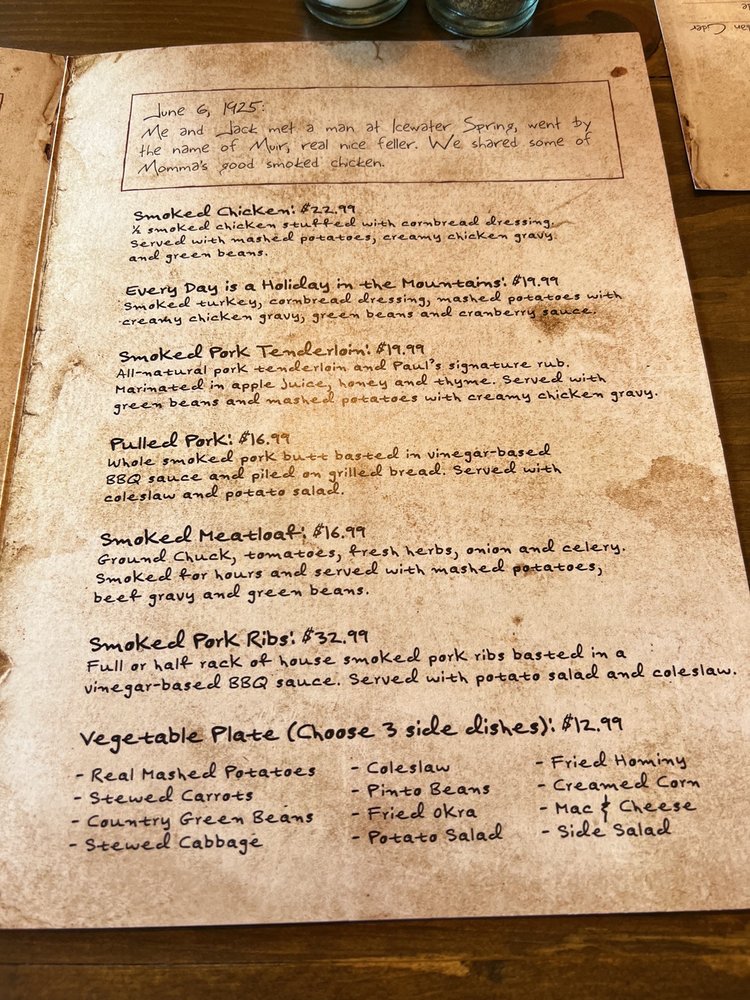 June 6, 1925:
Me and Jack met a man at Icewater Spring, went by
the name of Muir, real nice feller. We shared some of
Momma's good smoked chicken.
Smoked Chicken: $22.99
½ smoked chicken stuffed with cornbread dressing.
Served with mashed potatoes, creamy chicken gravy
and green beans.
Every Day is a Holiday in the Mountains: $19.99
Smoked turkey, cornbread dressing, mashed potatoes with
creamy chicken gravy, green beans and cranberry sauce.
Smoked Pork Tenderloin: $19.99
All-natural pork tenderloin and Paul's signature rub.
Marinated in apple juice, honey and thyme. Served with
green beans and mashed potatoes with creamy chicken gravy.
Pulled Pork: $16.99
Whole smoked pork butt basted in vinegar-based
BBQ sauce and piled on grilled bread. Served with
coleslaw and potato salad.
Smoked Meatloaf: $16.99
Ground Chuck, tomatoes, fresh herbs, onion and celery.
Smoked for hours and served with mashed potatoes,
beef gravy and green beans.
Smoked Pork Ribs: $32.99
Full or half rack of house smoked pork ribs basted in a
vinegar-based BBQ sauce. Served with potato salad and coleslaw.
Vegetable Plate (Choose 3 side dishes): $12.99
- Real Mashed Potatoes
- Stewed Carrots
- Country Green Beans
- Stewed Cabbage
- Coleslaw
- Pinto Beans
- Fried Okra
- Potato Salad
- Fried Hominy
- Creamed Corn
- Mac & Cheese
- Side Salad
Cider